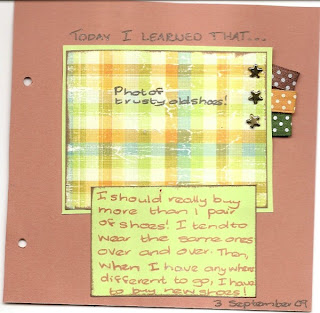 TODAY I LEARNED THAT...
Photo of
trusty old shoes!
I should really buy
more than 1 pair
of shoes! I tend to
wear the same ones
over and over. Then,
when I have any where
different to go, I have
to buy new shoes!
3 September 09